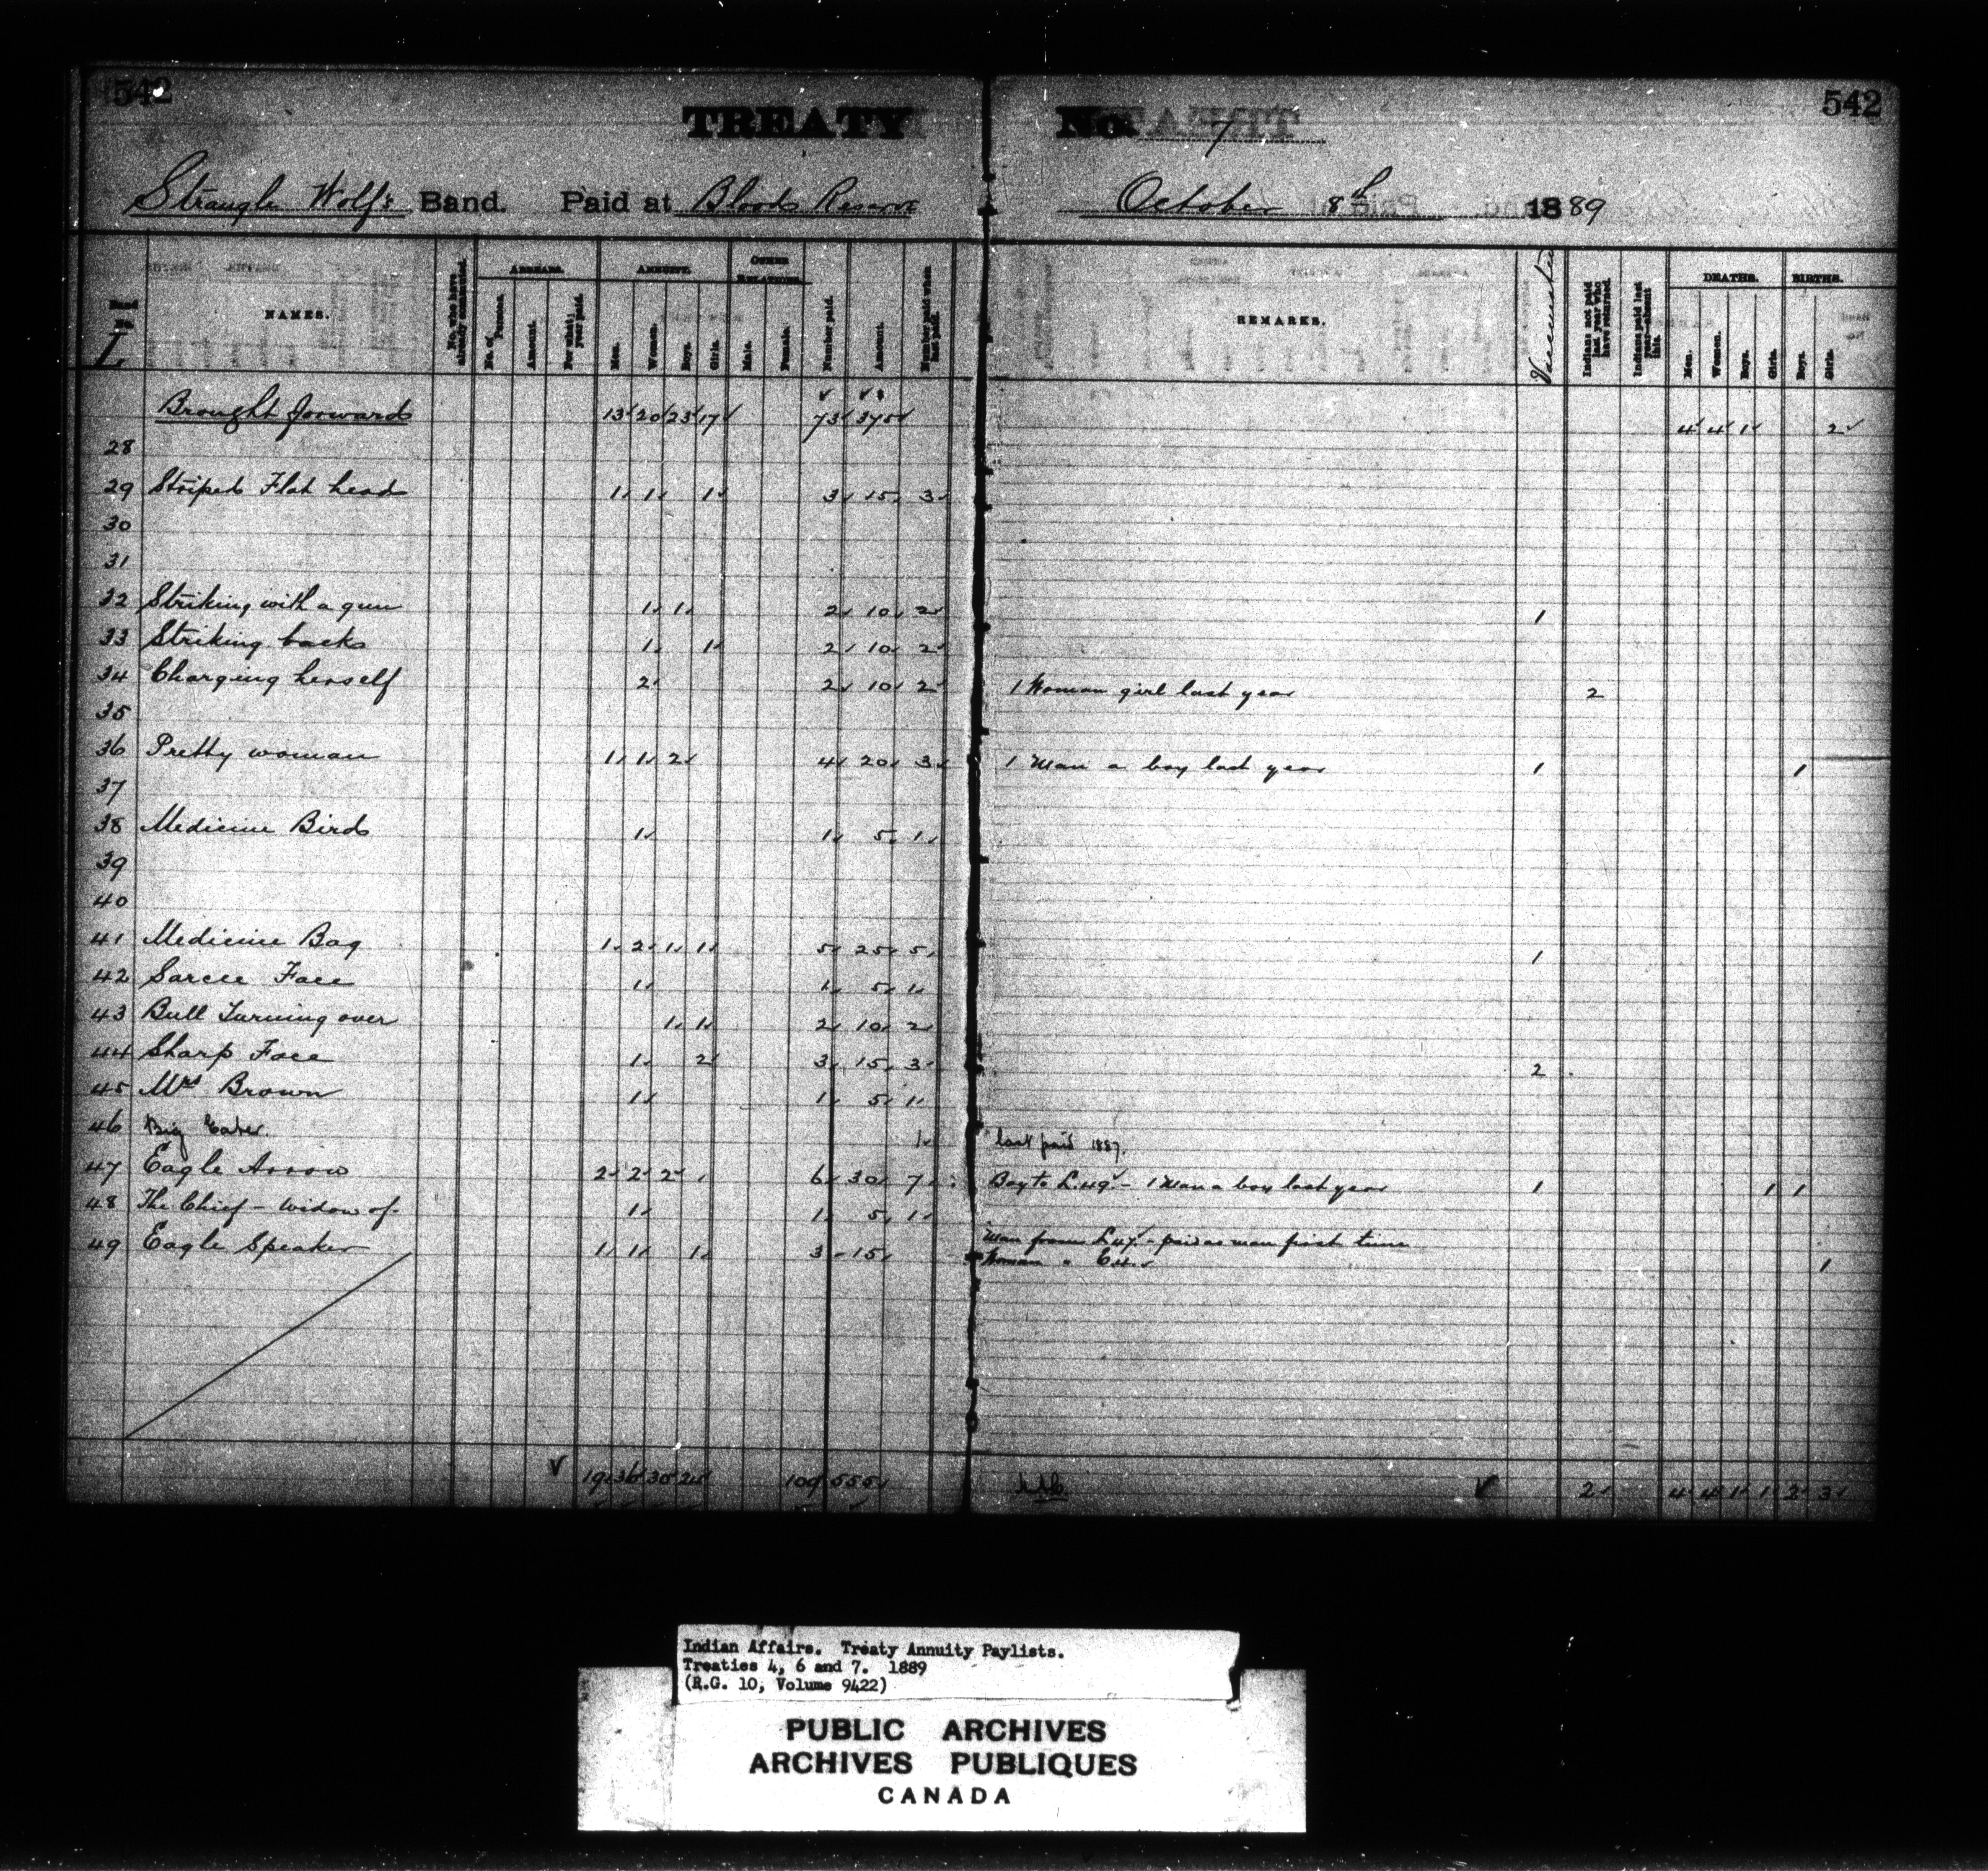 542
TREATY No. 7
542
Strangle Wolf's Band. Paid at Bloods Reserve October 8th 1889
Band No. L
NAMES.
No. who have already commuted.
ARREARS.
No. of Persons.
Amount.
For what year paid.
ANNUITY.
Men.
Women.
Boys.
Girls.
OTHER RELATIONS.
Male.
Female.
Number paid.
Amount.
Number paid when last paid.
REMARKS.
Indians not paid last year who have returned.
Indians paid last year—absent this.
DEATHS.
Men.
Women.
Boys.
Girls.
BIRTHS.
Boys.
Girls.
Brought forward 13 20 23 17 73 375 4 4 1 2
28
29 Striped Flat head 1 1 1 3 15 3
30
31
32 Striking with a gun 1 1 2 10 2 1
33 Striking backs 1 1 2 10 2
34 Charging herself 2 2 10 2 1 Woman girl last year 2
35
36 Pretty woman 1 1 2 4 20 3 1 Man a boy last year 1 1
37
38 Medicine Bird 1 1 5 1
39
40
41 Medicine Bag 1 2 1 1 5 25 5 1
42 Sarcee Face 1 1 5 1
43 Bull Turning over 1 1 2 10 2
44 Sharp Face 1 2 3 15 3 2
45 Mrs Brown 1 1 5 1
46 Big Eater 1 last paid 1887.
47 Eagle Arrow 2 2 2 6 30 7 Boy to L.49 - 1 Man a boy last year 1 1 1
48 The Chief - widow of - 1 1 5 1
49 Eagle Speaker 1 1 1 3 15 Man from L47 - paid as man first time
Woman " 1
19 36 30 24 109 555 2 4 4 1 1 2 3
Indian Affairs. Treaty Annuity Paylists.
Treaties 4, 6 and 7. 1889
(R.G. 10, Volume 9422)
PUBLIC ARCHIVES
ARCHIVES PUBLIQUES
CANADA